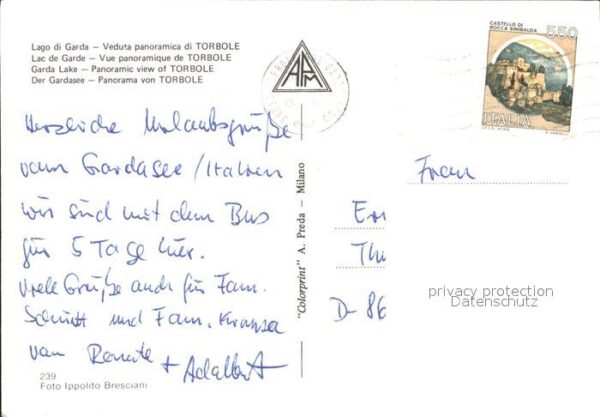 Lago di Garda – Veduta panoramica di TORBOLE
Lac de Garde – Vue panoramique de TORBOLE
Garda Lake – Panoramic view of TORBOLE
Der Gardasee – Panorama von TORBOLE
APM
CASTELLO DI
ROCCA SINIBALDA
550
ITALIA
Herzliche Urlaubsgrüße
vom Gardasee/Italien
wir sind mit dem Bus
für 5 Tage hier.
Viele Grüße auch für Fam.
Schmitt und Fam.
von Renate + Adalbert
"Colorprint" A. Preda – Milano
Frau
Th
D-86
privacy protection
Datenschutz
239
Foto Ippolito Bresciani